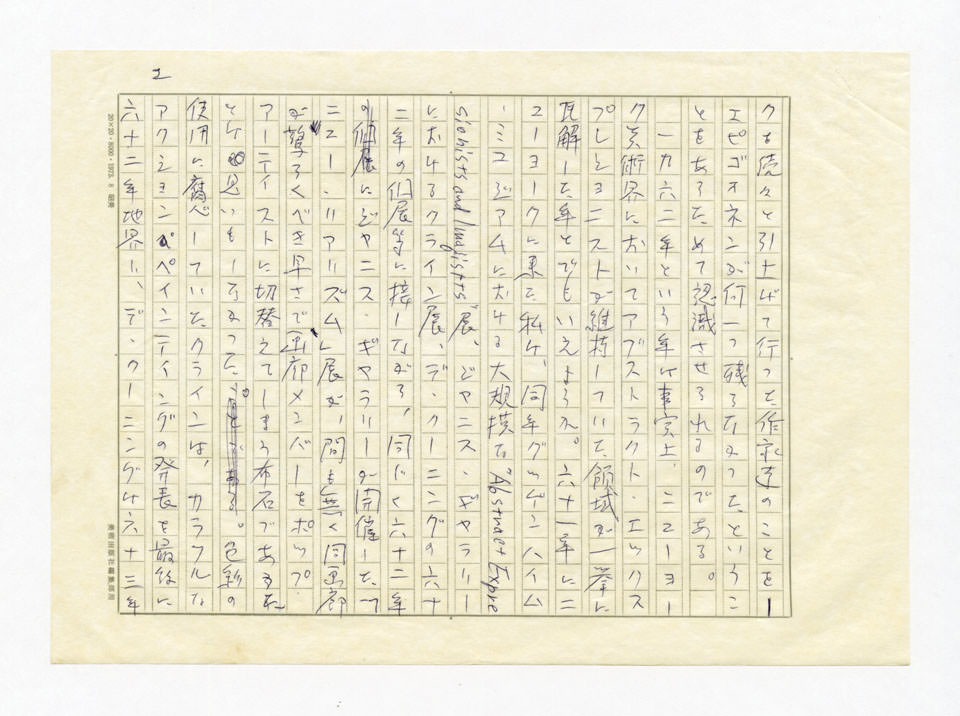 2
クを続々と引上げて行った作家達のことを—
エピゴオネンが何一つ残らなかったというこ
とをあらためて認識させられるのである。
一九六二年という年は事実上、ニューヨー
ク美術界においてアブストラクト・エックス
プレショニストが維持していた領域が一挙に
瓦解した年とでもいえようか。六十一年にニ
ューヨークに来た私は、同年グッゲンハイム
・ミュジアムにおける大規模な"Abstract Expre
sionists and Imagists"展、ジャニス・ギャラリー
におけるクライン展、デ・クーニングの六十
二年の個展等に接しながら、同じく六十二年
にジャニス・ギャラリーが開催した「
ニュー・リアリズム」展が、間も無く同画廊
が驚ろくべき早さで画廊メンバーをポップ
アーティストに切替えてしまう布石である
とは思いもしなかった。色彩の
使用に腐心していたクラインは、カラフルな
アクションペインティングの発表を最後に
六十二年他界し、デ・クーニングは六十三年
20×20・8000・1973. 8
美術出版社編集部用